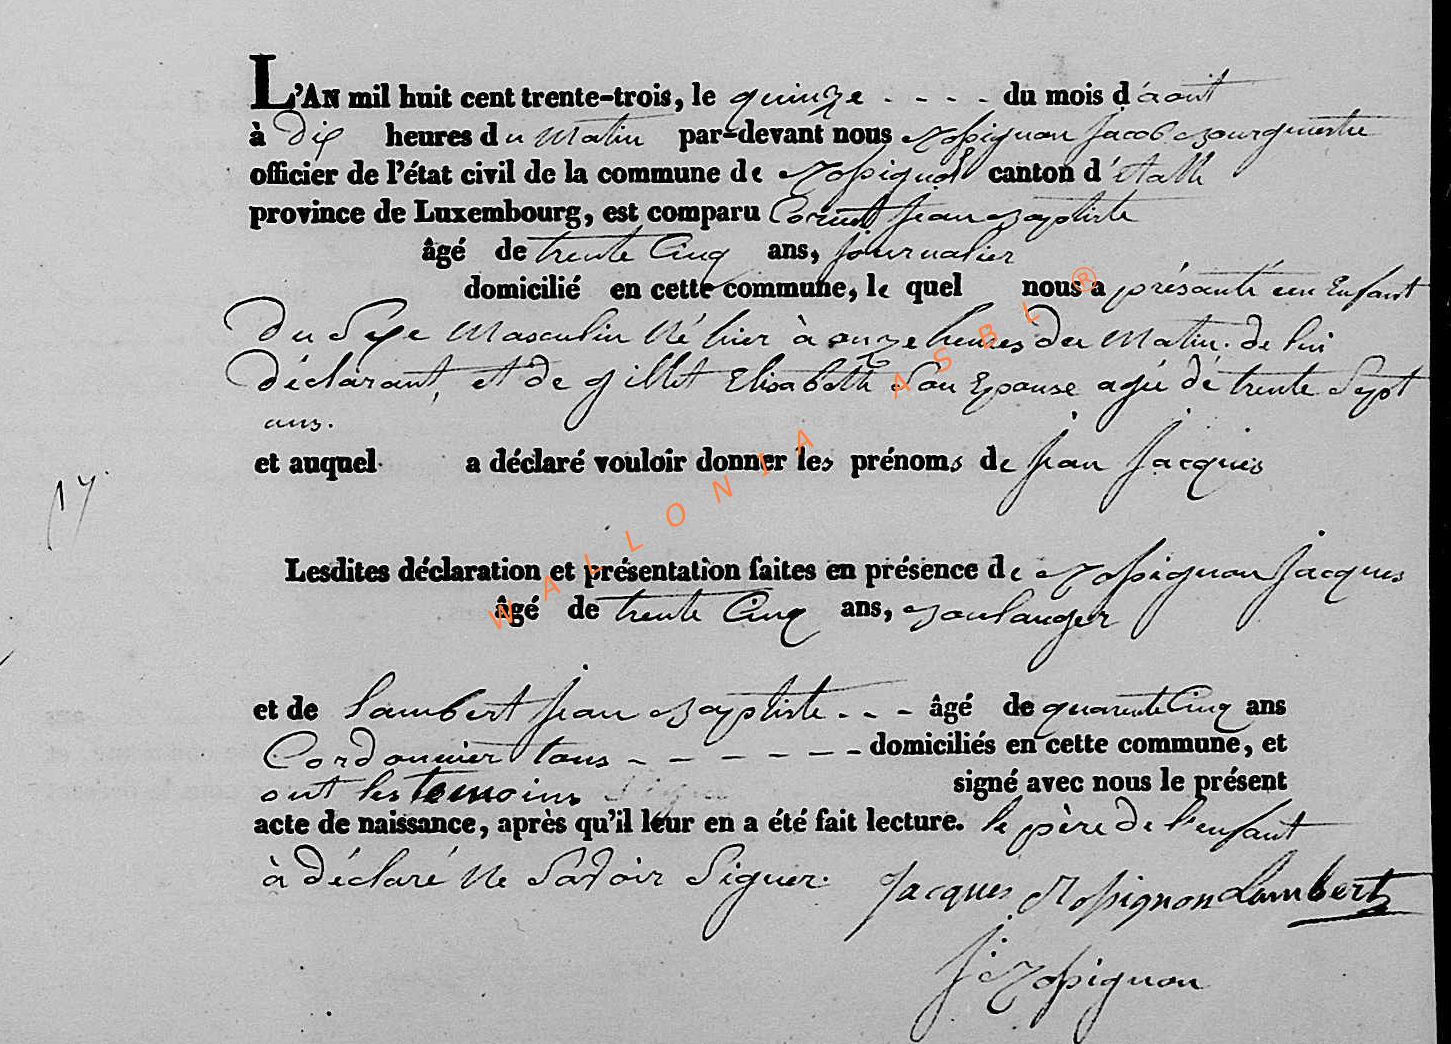 L'AN mil huit cent trente-trois, le quinze - - - - du mois d'aout
à Dix heures du Matin par-devant nous Rossignon Jacob Bourguestre
officier de l'état civil de la commune de Rossignol canton d'étalle
province de Luxembourg, est comparu Cornet jean Baptiste
âgé de trente Cinq ans, journalier
domicilié en cette commune, le quel nous a présanté un Enfant
Du Sexe Masculin Né hier à onze heures du Matin. de lui
Déclarant, et de gillet Elisabeth Son Epouse agée de trente Sept
ans.
et auquel a déclaré vouloir donner les prénoms de jean jacques
17.
Lesdites déclaration et présentation faites en présence de Rossignon jacques
âgé de trente Cinq ans, Boulanger
et de Lambert jean Baptiste - - - âgé de quarente Cinq ans
Cordonnier tous - - - - - - domiciliés en cette commune, et
ont les temoins signé avec nous le présent
acte de naissance, après qu'il leur en a été fait lecture. le père de l'enfant
à déclaré Ne Savoir Signer.
Jacques Rossignon Lambert
J Rossignon
WALLONIA ASBL ®